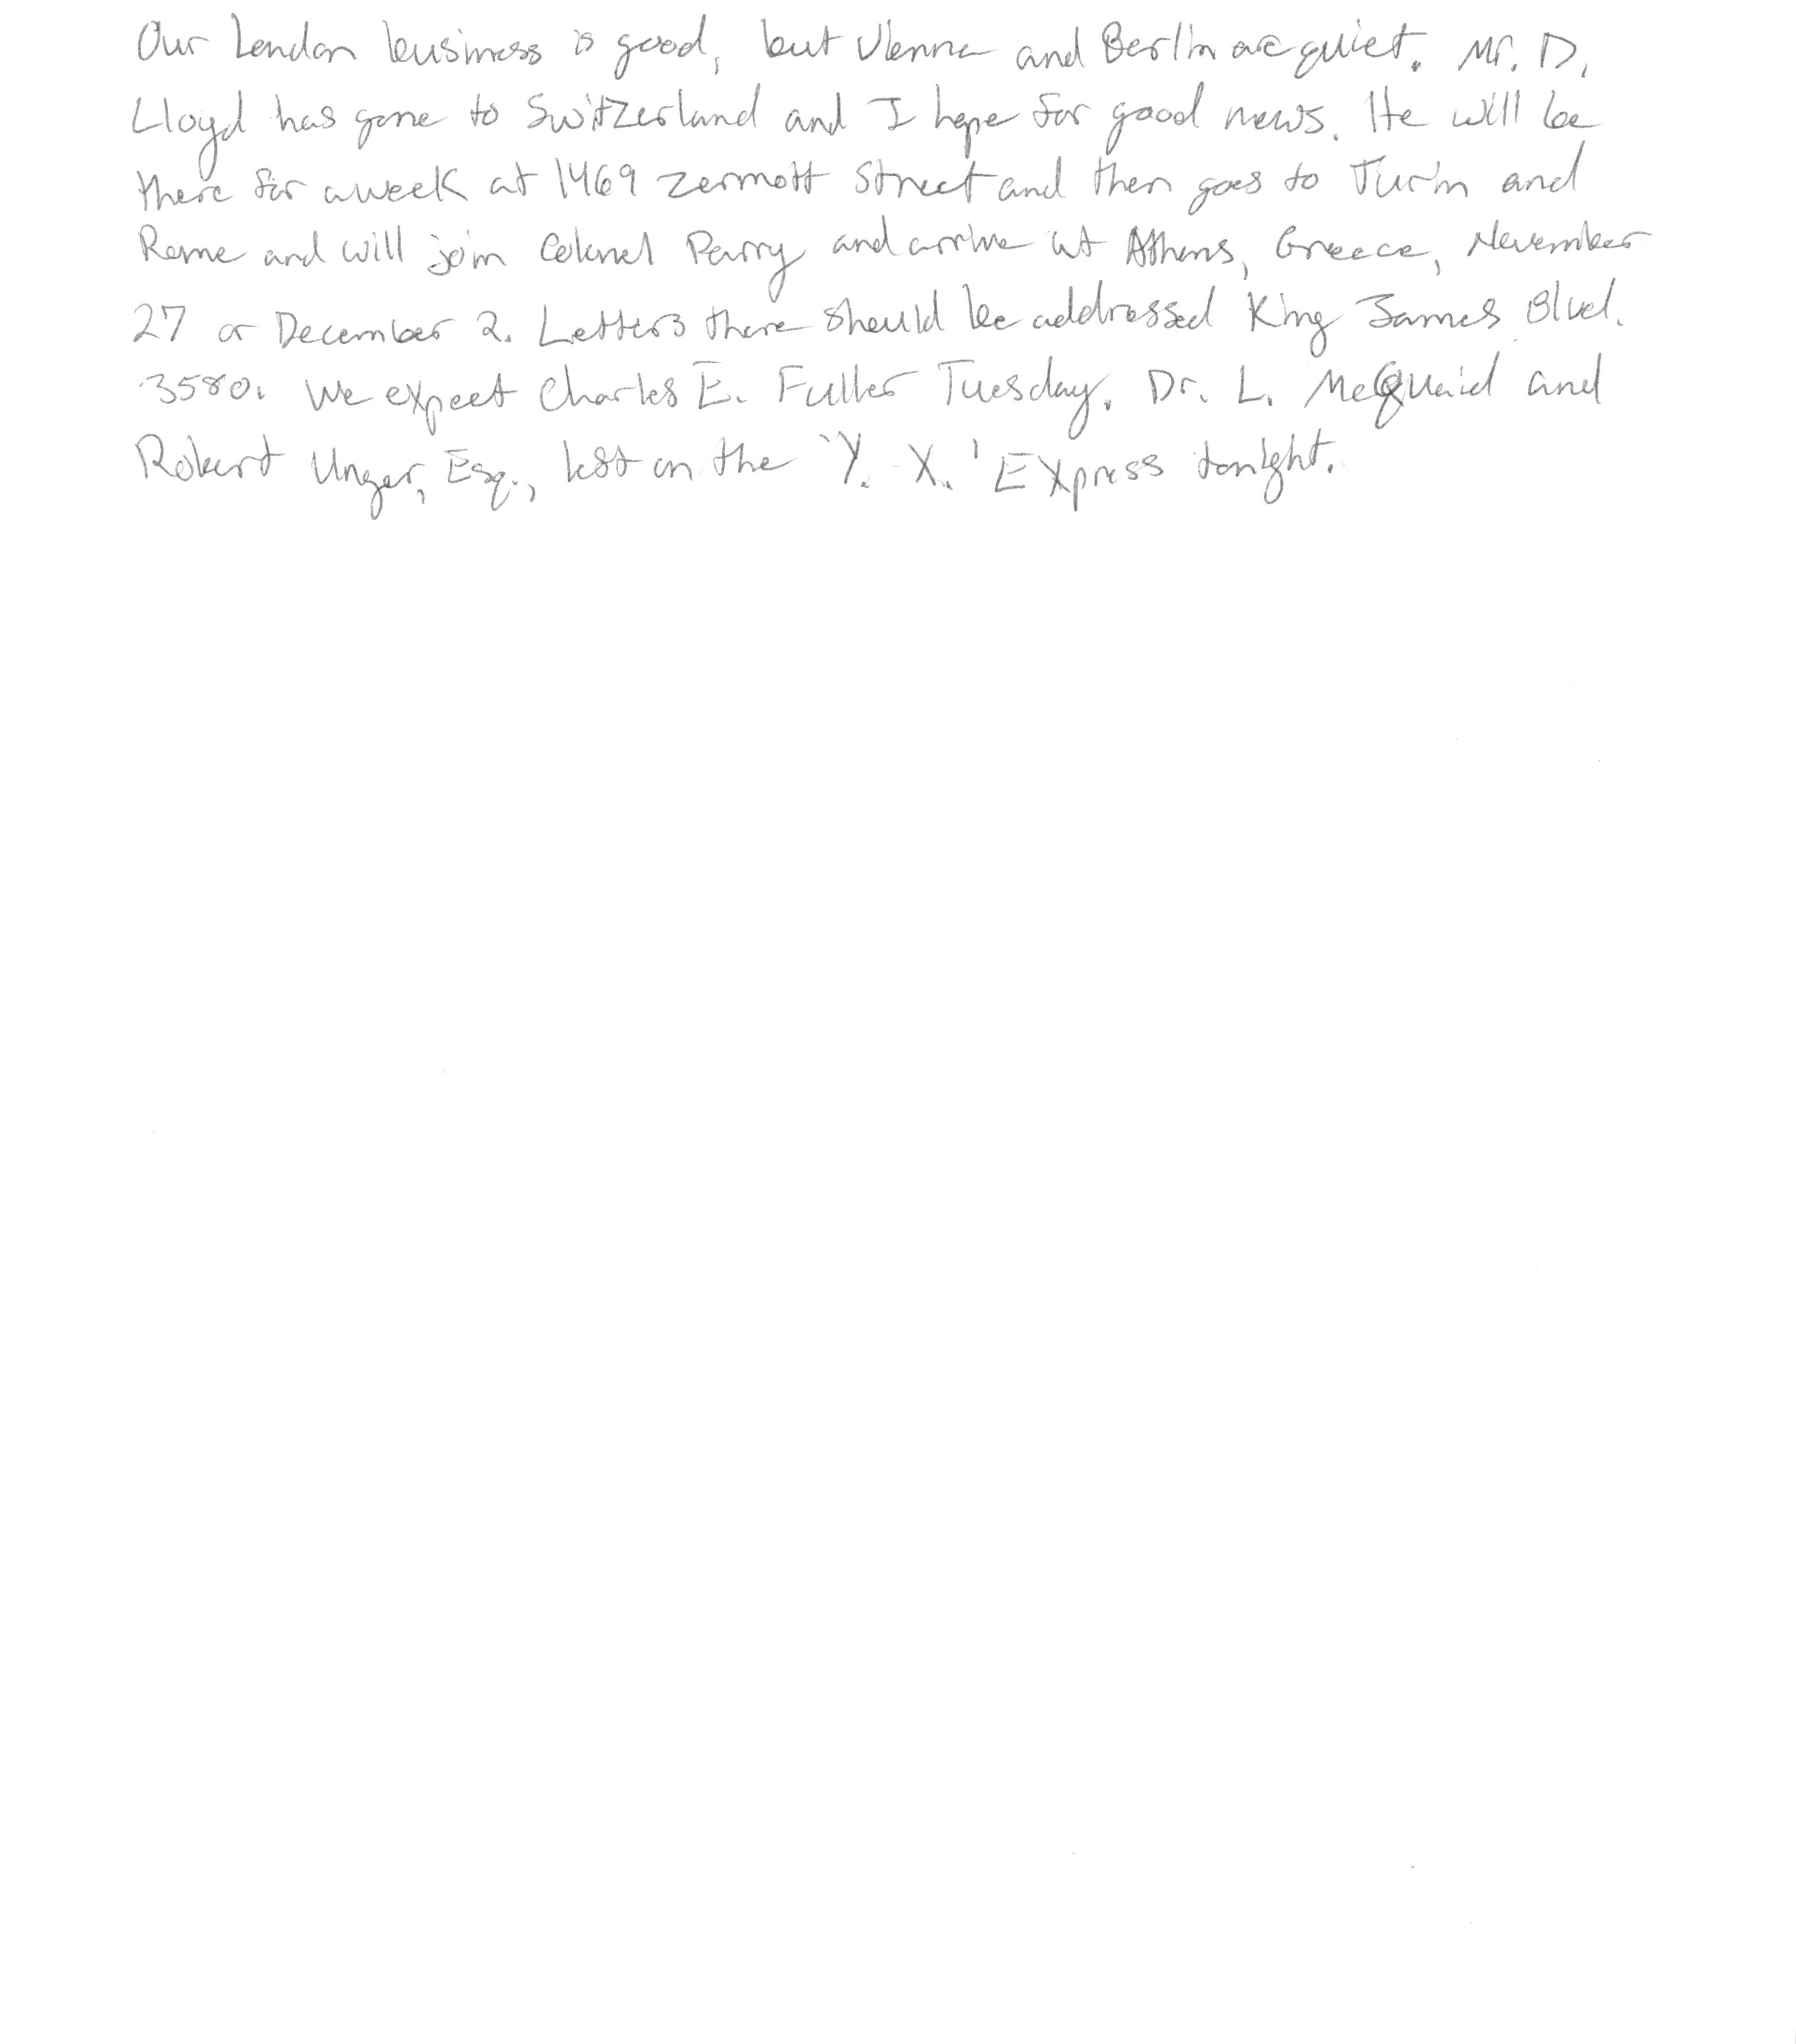 Our London business is good, but Vienna and Berlin are quiet. Mr. D.
Lloyd has gone to Switzerland and I hope for good news. He will be
there for a week at 1469 Zermott Street and then goes to Turin and
Rome and will join Colonel Parry and arrive at Athens, Greece, November
27 or December 2. Letters there should be addressed King James Blvd.
3580. We expect Charles E. Fuller Tuesday. Dr. L. McQuaid and
Robert Unger, Esq., left on the 'Y. X.' Express tonight.